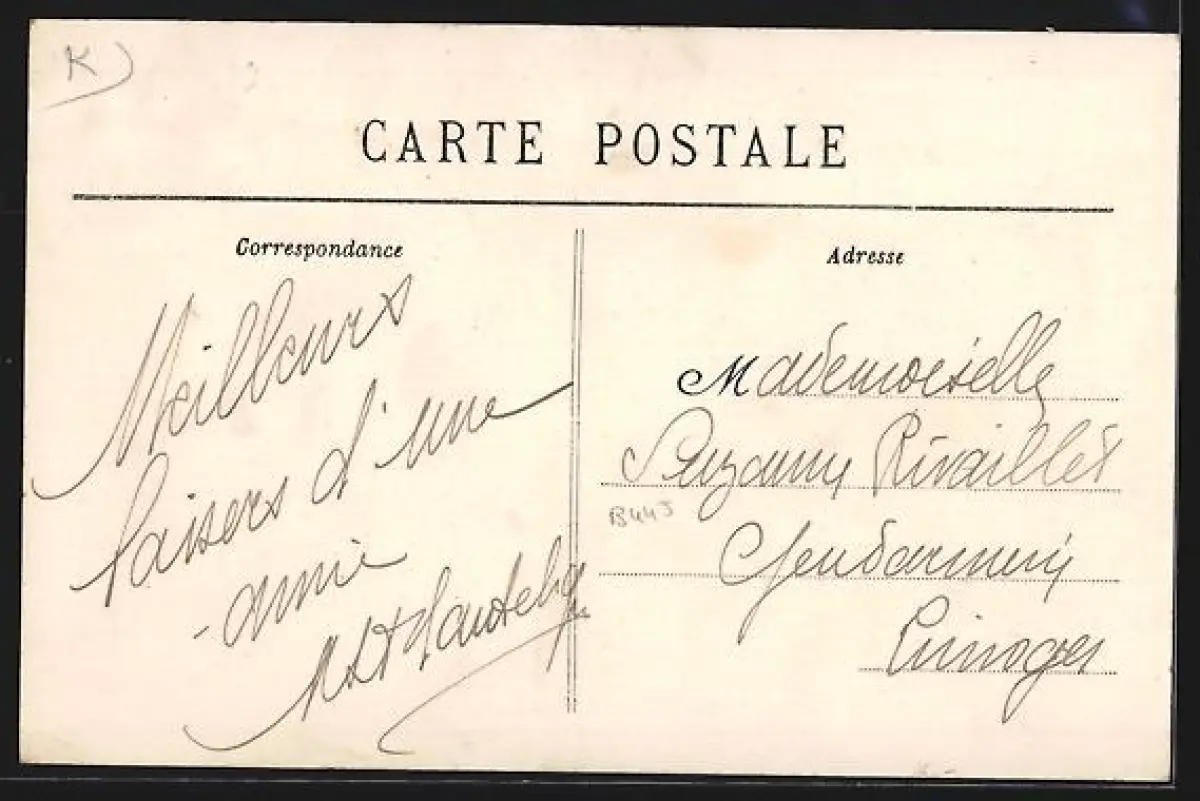 K
CARTE POSTALE
Correspondance
Meilleurs
baisers d'une
amie
Adresse
Mademoiselle
Suzanne Rivaillet
B443
Gendarmerie
Limoges